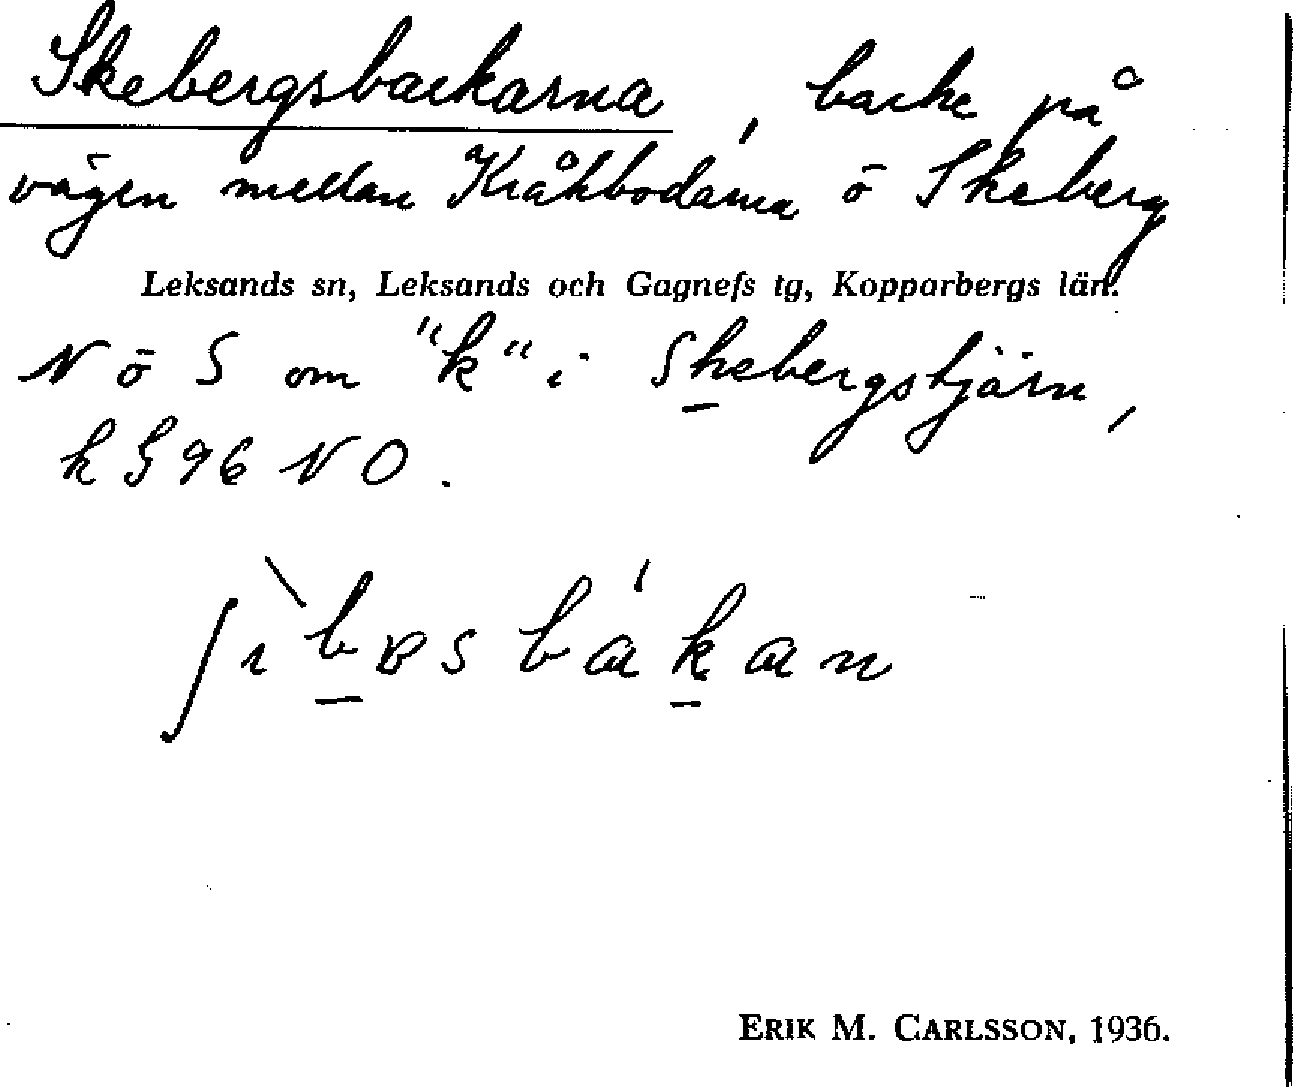 Skebergsbackarna, backe på
vägen mellan Kråkbodarna ö Skeberg
Leksands sn, Leksands och Gagnefs tg, Kopparbergs län.
N ö S om "k" i Skebergstjärn,
k S 96 NO.
ʃɩ̀bɐsbákan
ERIK M. CARLSSON, 1936.